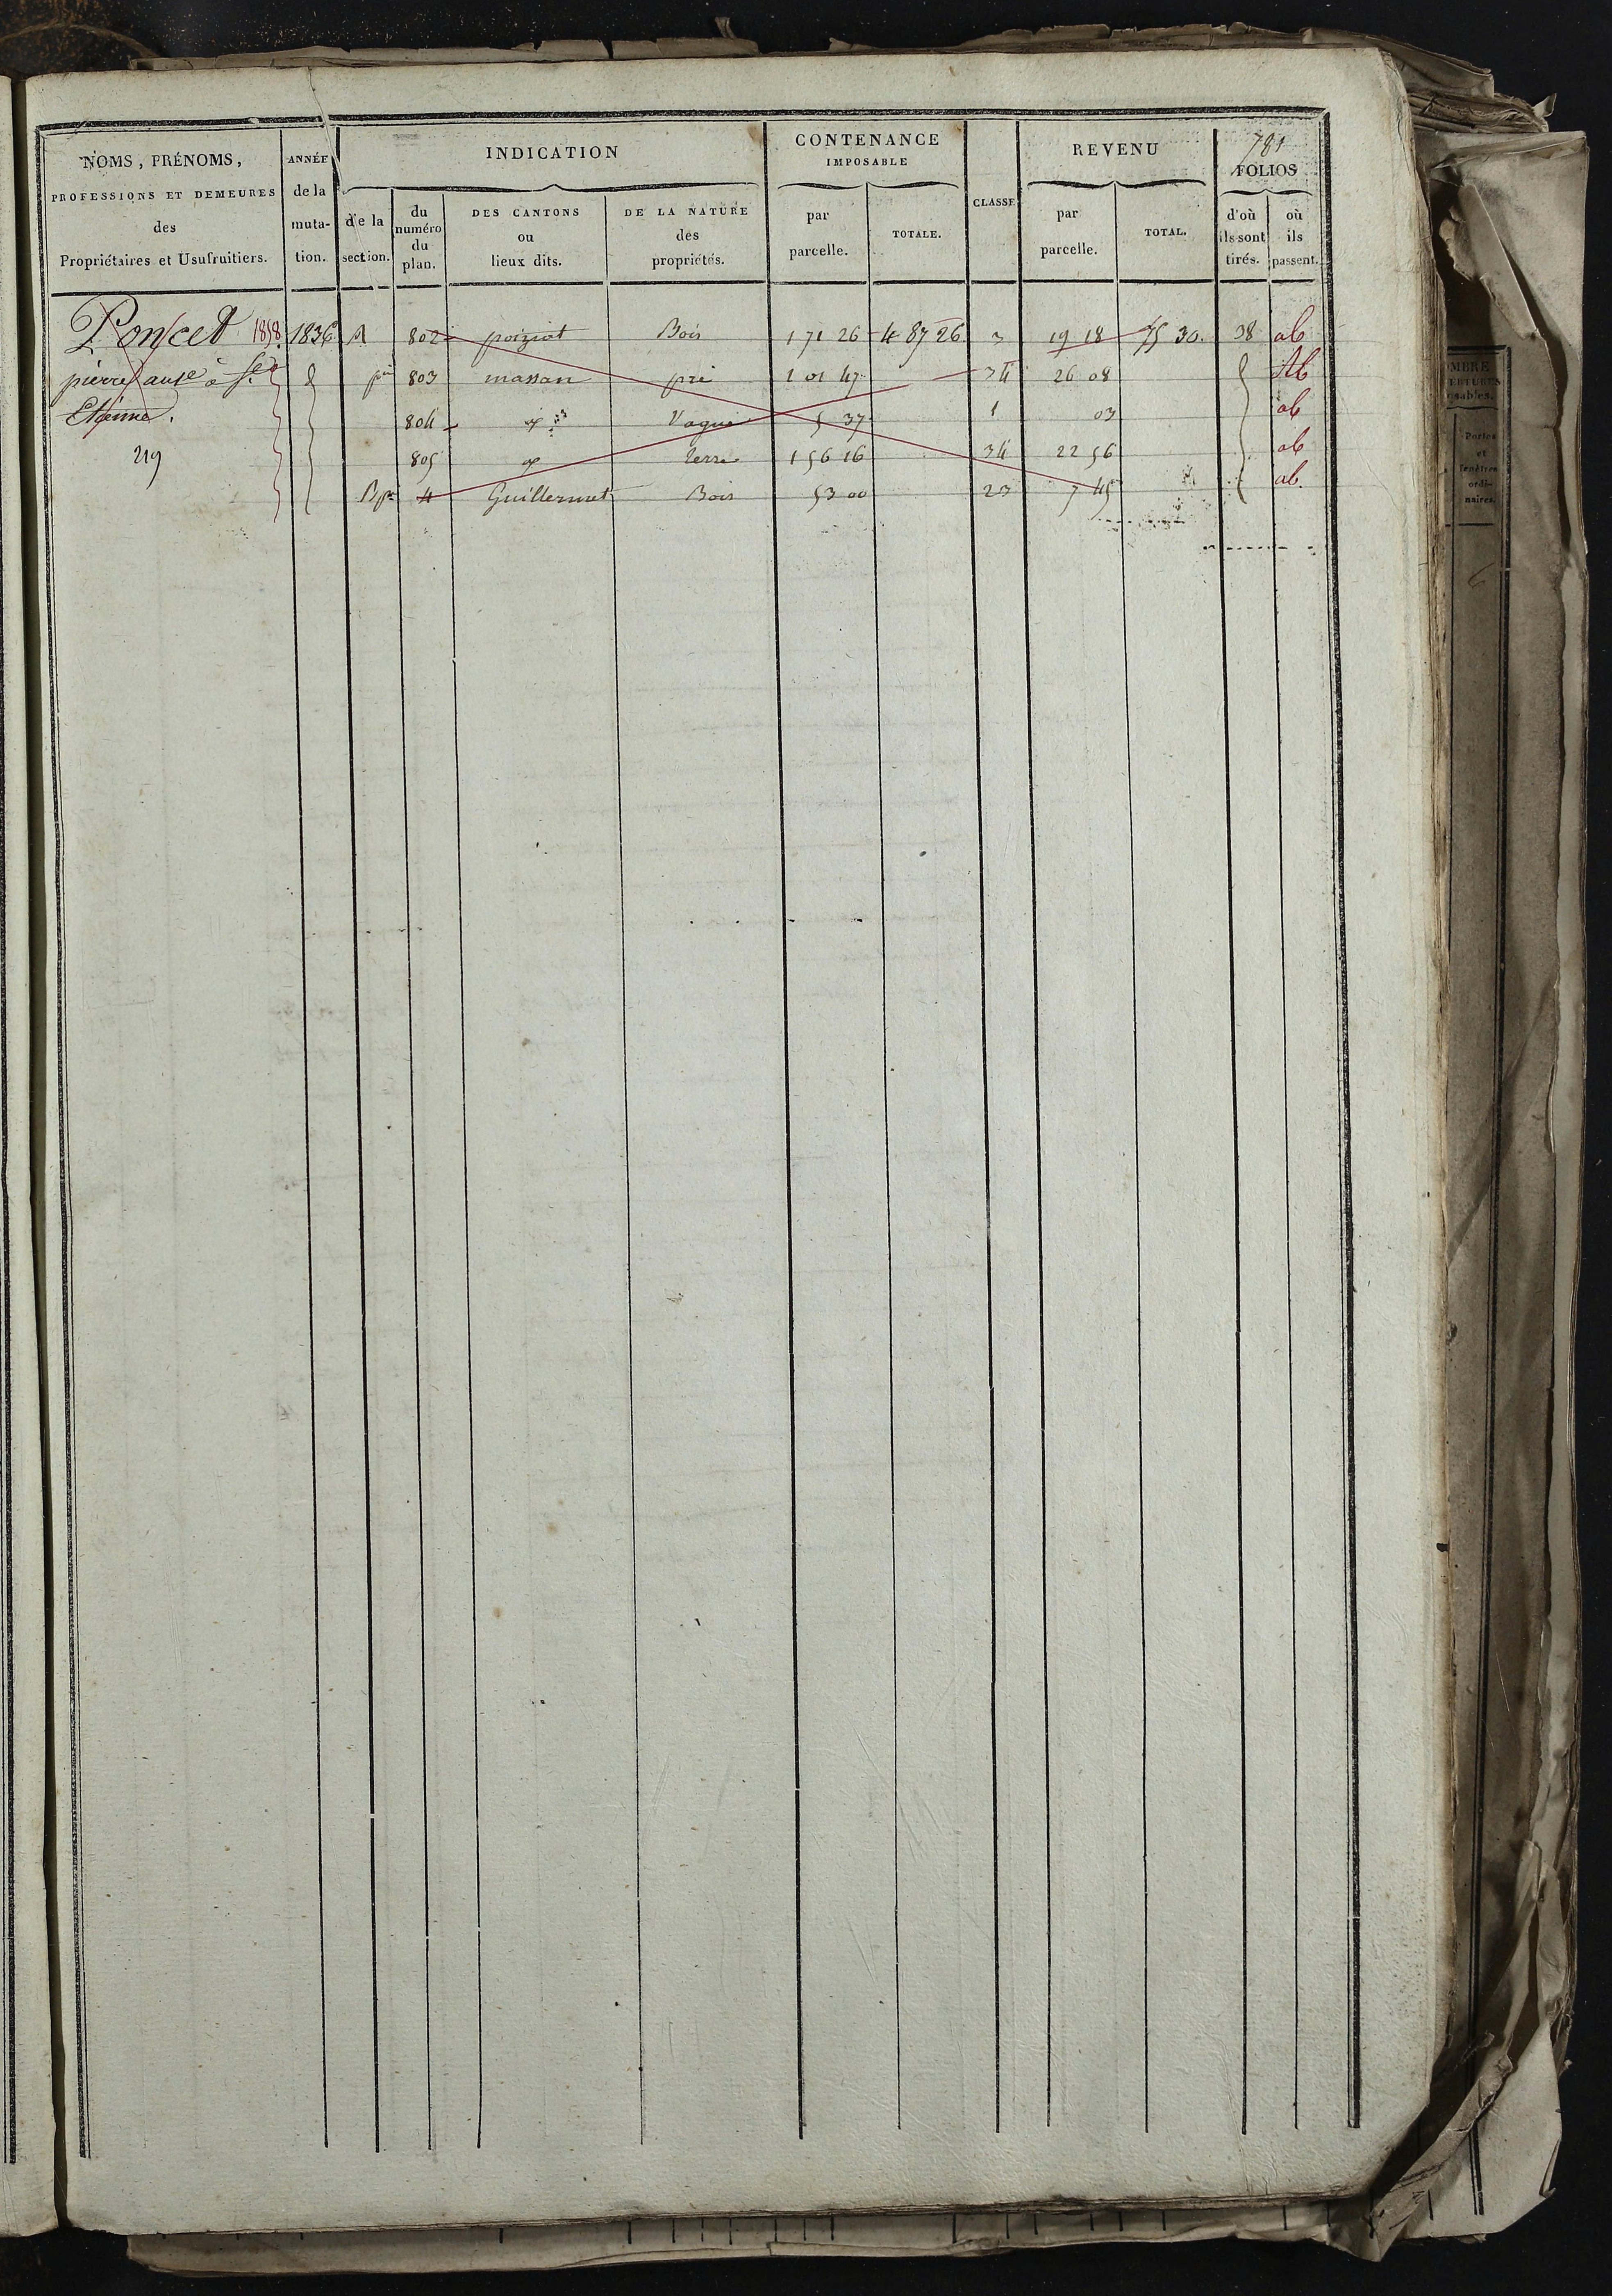 781
NOMS, PRÉNOMS,
PROFESSIONS ET DEMEURES
des
Propriétaires et Usufruitiers.
ANNÉE
de la
muta-
tion.
INDICATION
de la
section.
du
numéro
du
plan.
DES CANTONS
ou
lieux dits.
DE LA NATURE
des
propriétés.
CONTENANCE
IMPOSABLE
par
parcelle.
TOTALE.
CLASSE
REVENU
par
parcelle.
TOTAL.
FOLIOS
d'où
ils sont
tirés.
où
ils
passent.
Poncet 1858 1836 A 802 poiziat Bois 1 71 26 4 87 26 3 19 18 75 30. 38 ab
pierre à St 803 massan pré 1 01 47 34 26 08 Ab
Etienne. 804 Vague 5 37 1 03 ab
219 805 terre 1 56 16 34 22 56 ab
B 4 Guillermet Bois 53 00 23 7 45 ab.
MBRE
ERTURES
sables.
Portes
et
fenêtres
ordi-
naires.
6